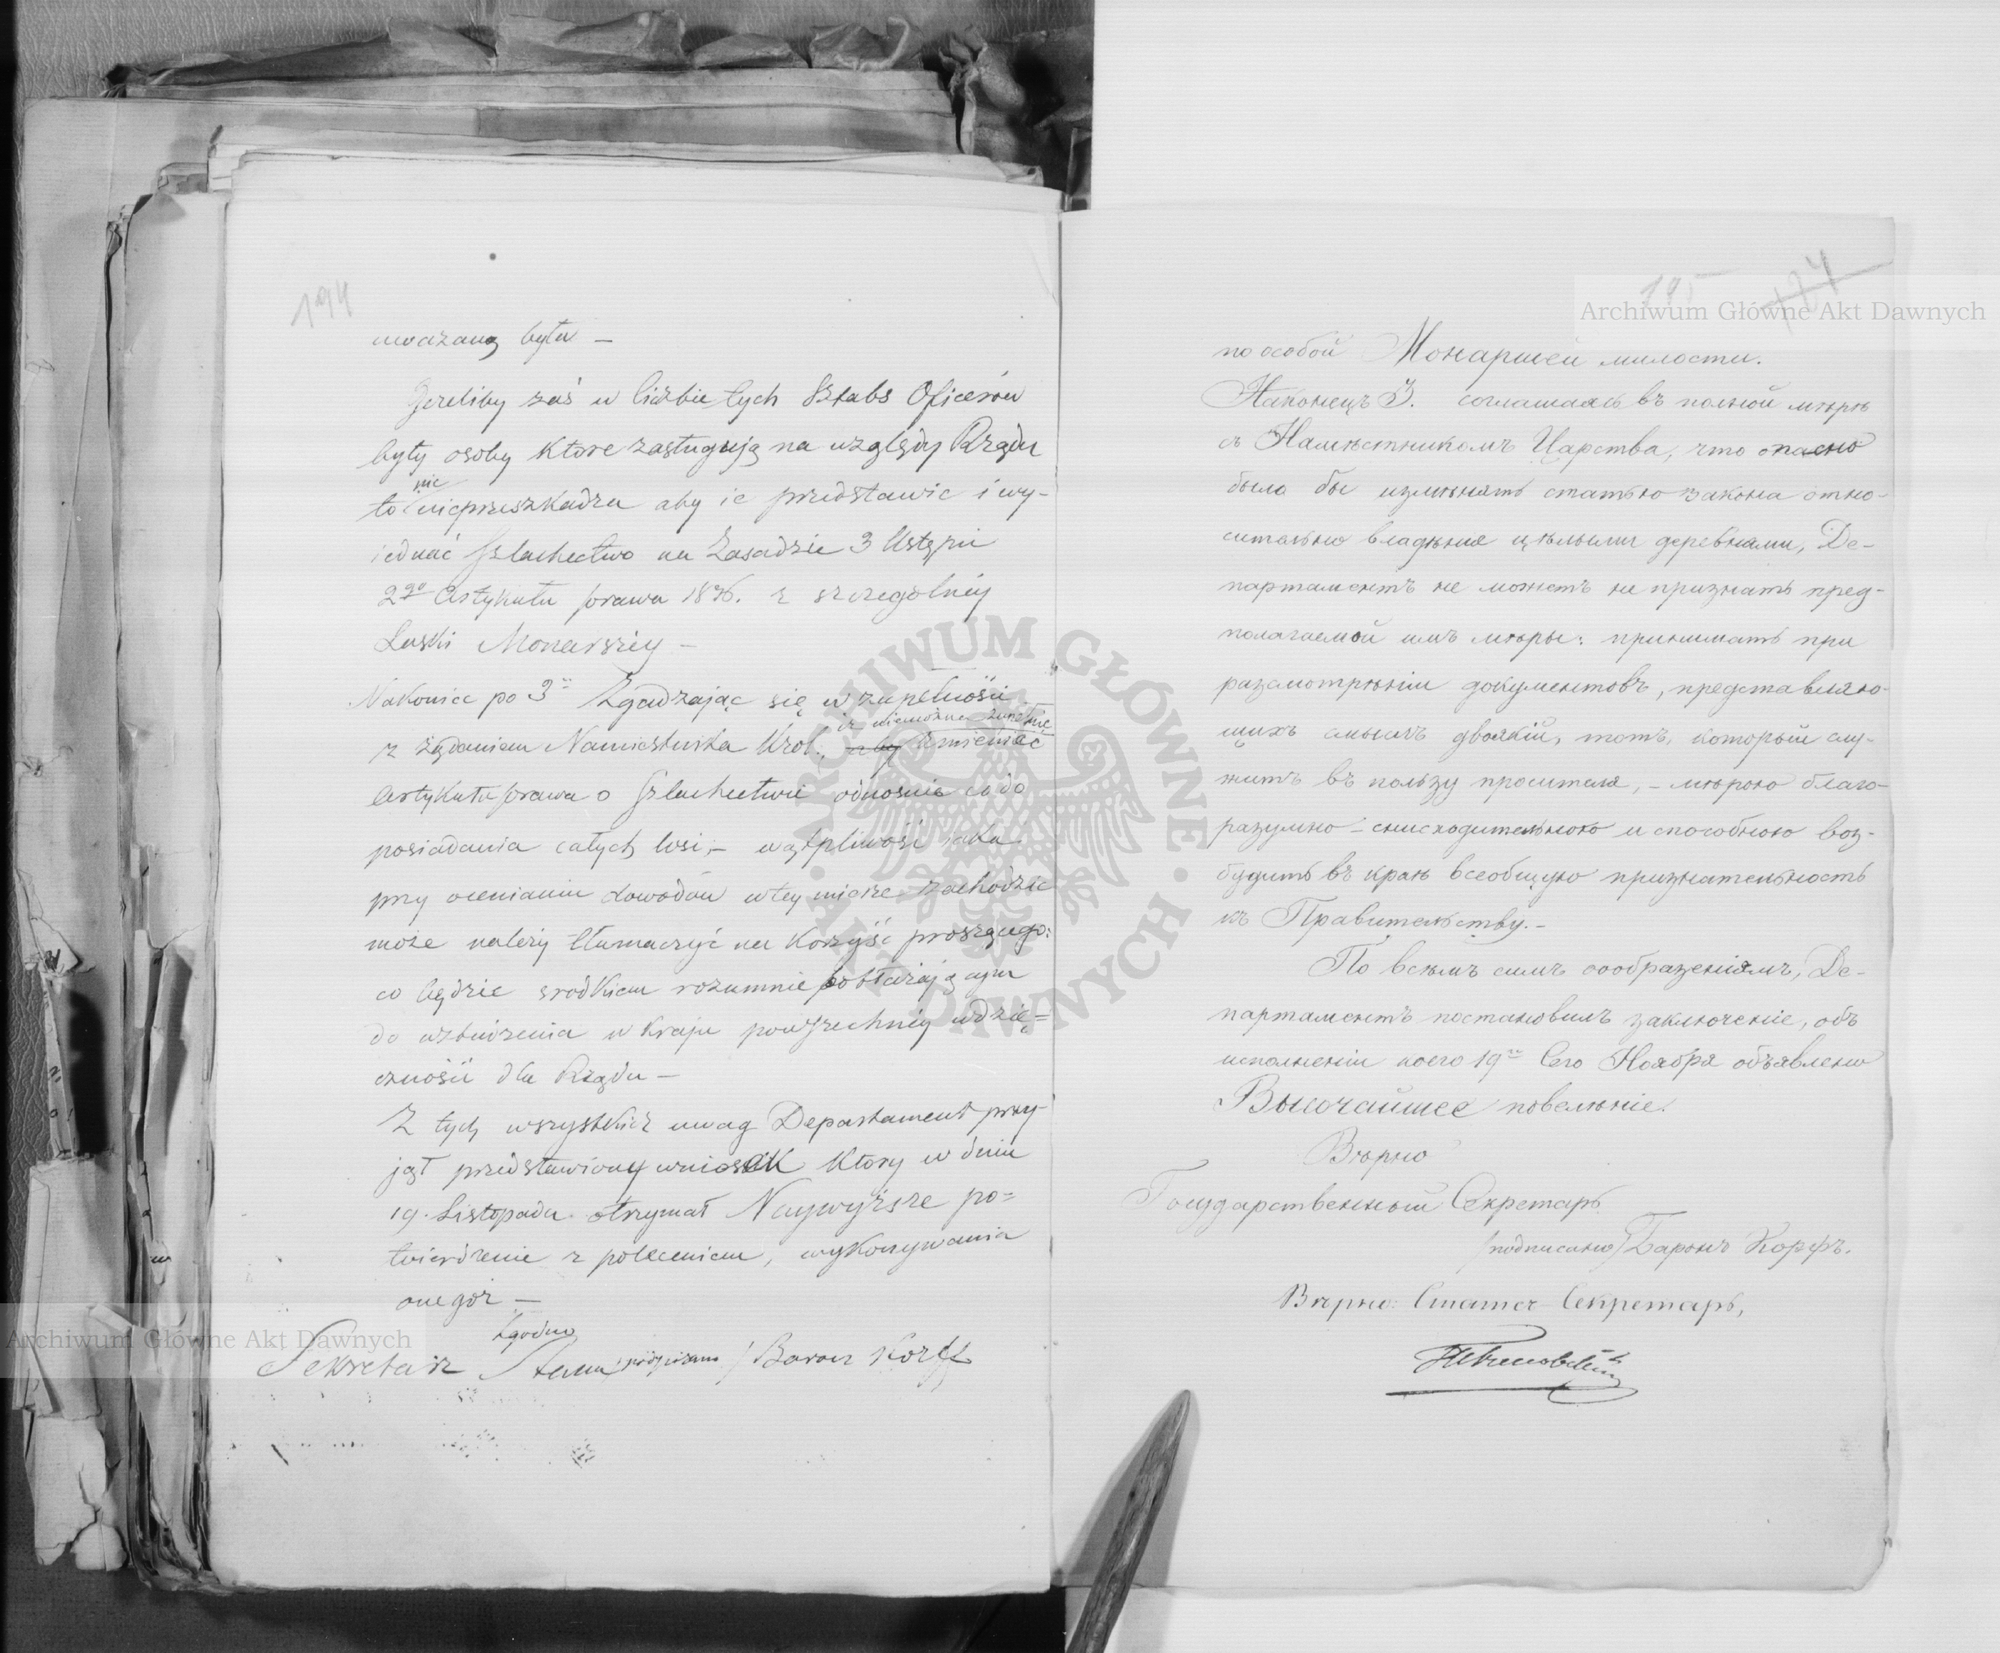 194
uważaną była —
Jeżeliby zaś w liczbie tych Sztabs Oficerów
były osoby które zasługują na względy Rządu
nic
to nieprzeszkadza aby ie przedstawic i wy-
iednać Szlachectwo na Zasadzie 3 Ustępu
2go Artykułu prawa 1836. z szczególniéy
Łaski Monarszéy —
Nakoniec po 3e Zgadzając się w zupełności
iż niemożna
z żądaniem Namiestnika Król. aby zmieniać
Artykułu prawa o Szlachectwie odnośnie co do
posiadania całych wsi, — wątpliwość iaka
przy ocenianiu dowodów w tey mierze zachodzić
może należy tłumaczyć na korzyść proszącego:
co będzie srodkiem rozumnie pobłażaiącym
do wzbudzenia w kraju powszechnéy wdzię=
czności dla Rządu —
Z tych wszystkich uwag Departament przy-
jął przedstawiony wniosek który w dniu
19. Listopada otrzymał Naywyższe po=
twierdzenie z poleceniem, wykonywania
onegoż —
Zgodno
Sekretarz Stanu /podpisano/ Baron Korff
195 124
по особой Монаршей милости.
Наконецъ 3. соглашаясь въ полной мѣрѣ
съ Намѣстникомъ Царства, что опасно
было бы измѣнять статью закона отно-
сительно владѣнія цѣлыми деревнями, Де-
партаментъ не можетъ не признать пред-
полагаемой имъ мѣры: принимать при
разсмотрѣніи документовъ, представляю-
щихъ смыслъ двоякій, тотъ, который слу-
житъ въ пользу просителя, — мѣрою благо-
разумно-снисходительною и способною воз-
будить въ краѣ всеобщую признательность
къ Правительству. —
По всѣмъ симъ соображеніямъ, Де-
партаментъ постановилъ заключеніе, объ
исполненіи коего 19го Сего Ноября объявлено
Высочайшее повелѣніе.
Вѣрно
Государственный Секретарь
/подписано/ Баронъ Корфъ.
Вѣрно: Статсъ-Секретарь,
Archiwum Główne Akt Dawnych
Archiwum Główne Akt Dawnych
ARCHIWUM GŁÓWNE AKT DAWNYCH